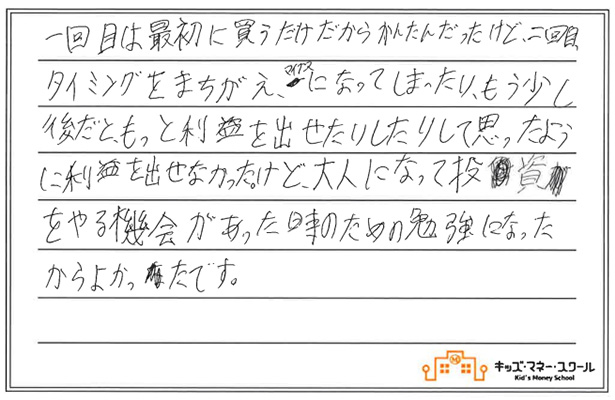 一回目は最初に買うだけだからかんたんだったけど、二回目
タイミングをまちがえ、マイナスになってしまったり、もう少し
後だと、もっと利益を出せたりしたりして思ったよう
に利益を出せなかったけど、大人になって投資
をやる機会があった時のための勉強になった
からよかったです。
キッズ・マネー・スクール
Kid's Money School